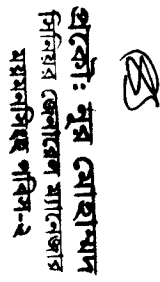 প্রকৌঃ নুর মোহাম্মদ
সিনিয়র জেনারেল ম্যানেজার
ময়মনসিংহ পবিস-২